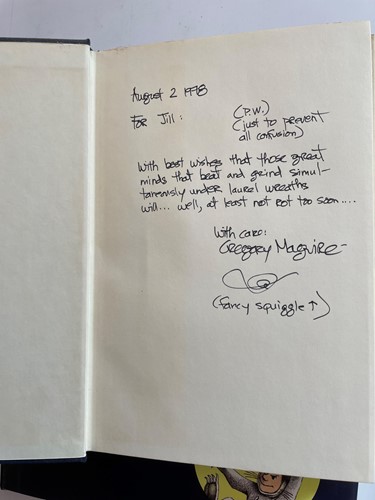 August 2 1978
For Jill:
(P.W.)
(just to prevent
all confusion)
With best wishes that those great
minds that beat and grind simul-
taneously under laurel wreaths
will... well, at least not rot too soon....
With care:
Gregory Maguire
(fancy squiggle ↑)